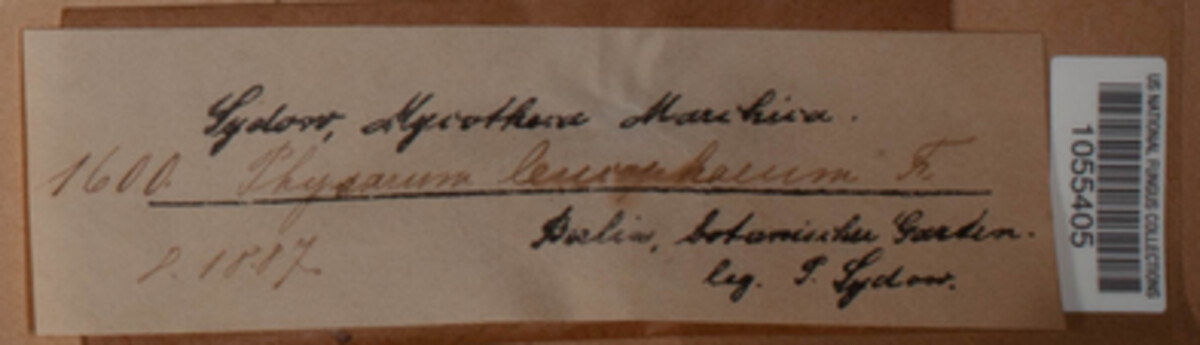 Sydow, Mycotheca Marchica.
1600. Physarum leucophaeum Fr.
8. 1887
Berlin, botanischer Garten.
leg. P. Sydow.
US NATIONAL FUNGUS COLLECTIONS
1055405